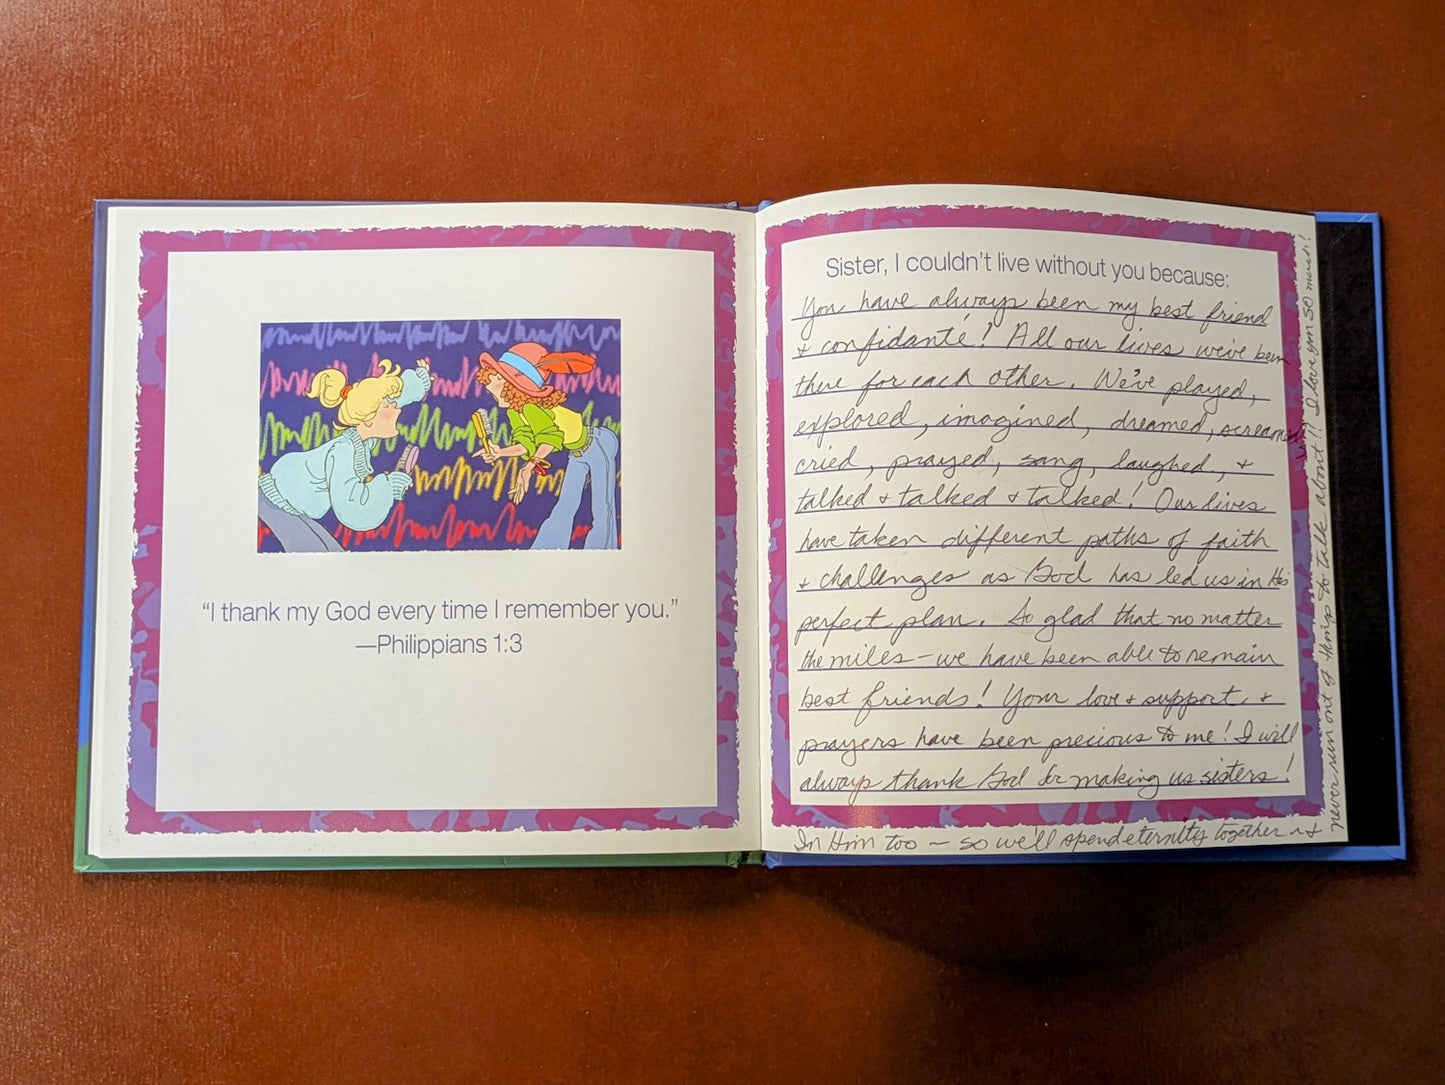 “I thank my God every time I remember you.”
—Philippians 1:3
Sister, I couldn’t live without you because:
You have always been my best friend
& confidanté! All our lives we've been
there for each other. We've played,
explored, imagined, dreamed, screamed,
cried, prayed, sang, laughed, &
talked & talked & talked! Our lives
have taken different paths of faith
& challenges as God has led us in His
perfect plan. So glad that no matter
the miles – we have been able to remain
best friends! Your love & support, &
prayers have been precious to me! I will
always thank God for making us sisters!
In Him too – so we'll spend eternity together &
never run out of things to talk about!! I love you SO much!